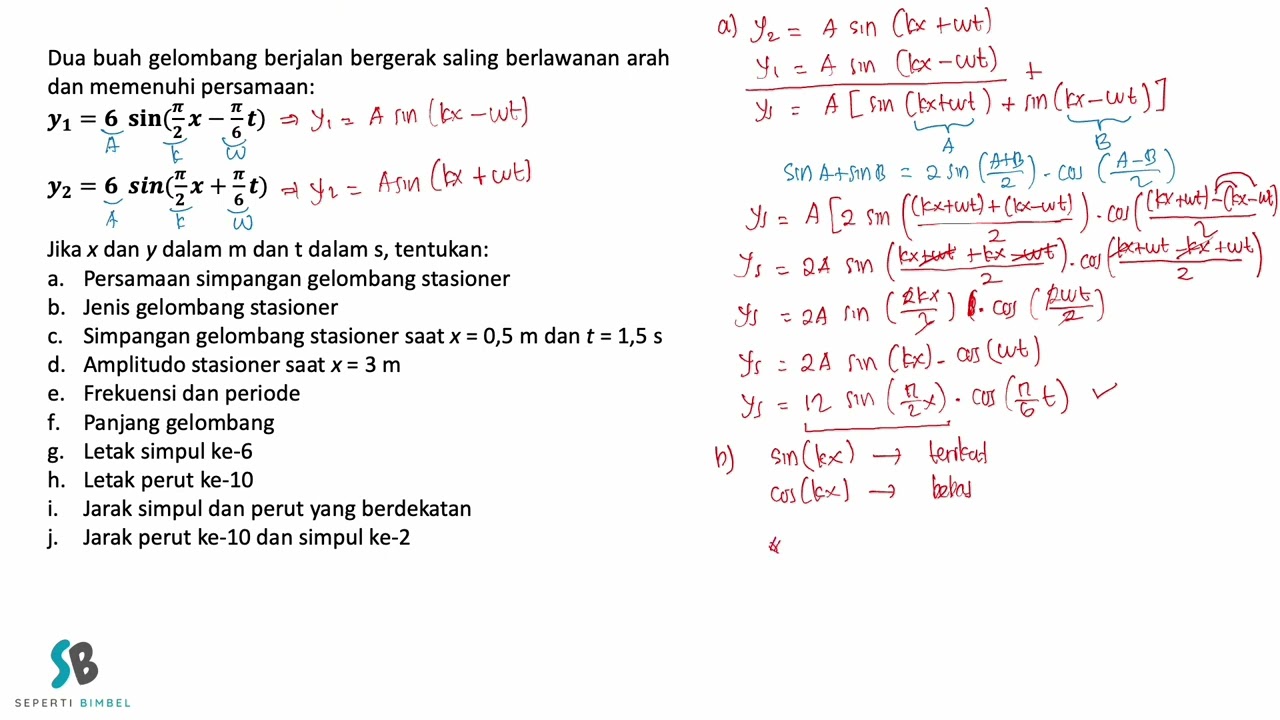 Dua buah gelombang berjalan bergerak saling berlawanan arah
dan memenuhi persamaan:
y₁ = 6 sin(π/2 x − π/6 t) ⇒ y₁ = A sin (kx − ωt)
A k ω
y₂ = 6 sin(π/2 x + π/6 t) ⇒ y₂ = A sin (kx + ωt)
A k ω
Jika x dan y dalam m dan t dalam s, tentukan:
a. Persamaan simpangan gelombang stasioner
b. Jenis gelombang stasioner
c. Simpangan gelombang stasioner saat x = 0,5 m dan t = 1,5 s
d. Amplitudo stasioner saat x = 3 m
e. Frekuensi dan periode
f. Panjang gelombang
g. Letak simpul ke-6
h. Letak perut ke-10
i. Jarak simpul dan perut yang berdekatan
j. Jarak perut ke-10 dan simpul ke-2
SB
SEPERTI BIMBEL
a) y₂ = A sin (kx + ωt)
y₁ = A sin (kx − ωt) +
ys = A [sin (kx+ωt) + sin (kx − ωt)]
A B
sin A + sin B = 2 sin ((A+B)/2) . cos ((A−B)/2)
ys = A [2 sin (((kx+ωt) + (kx−ωt))/2) . cos (((kx+ωt) − (kx−ωt)/2
ys = 2A sin ((kx+ωt + kx − ωt)/2) . cos ((kx+ωt − kx + ωt)/2)
ys = 2A sin (2kx/2) . cos (2ωt/2)
ys = 2A sin (kx) . cos (ωt)
ys = 12 sin (π/2 x) . cos (π/6 t) ✓
b) sin (kx) → terikat
cos (kx) → bebas